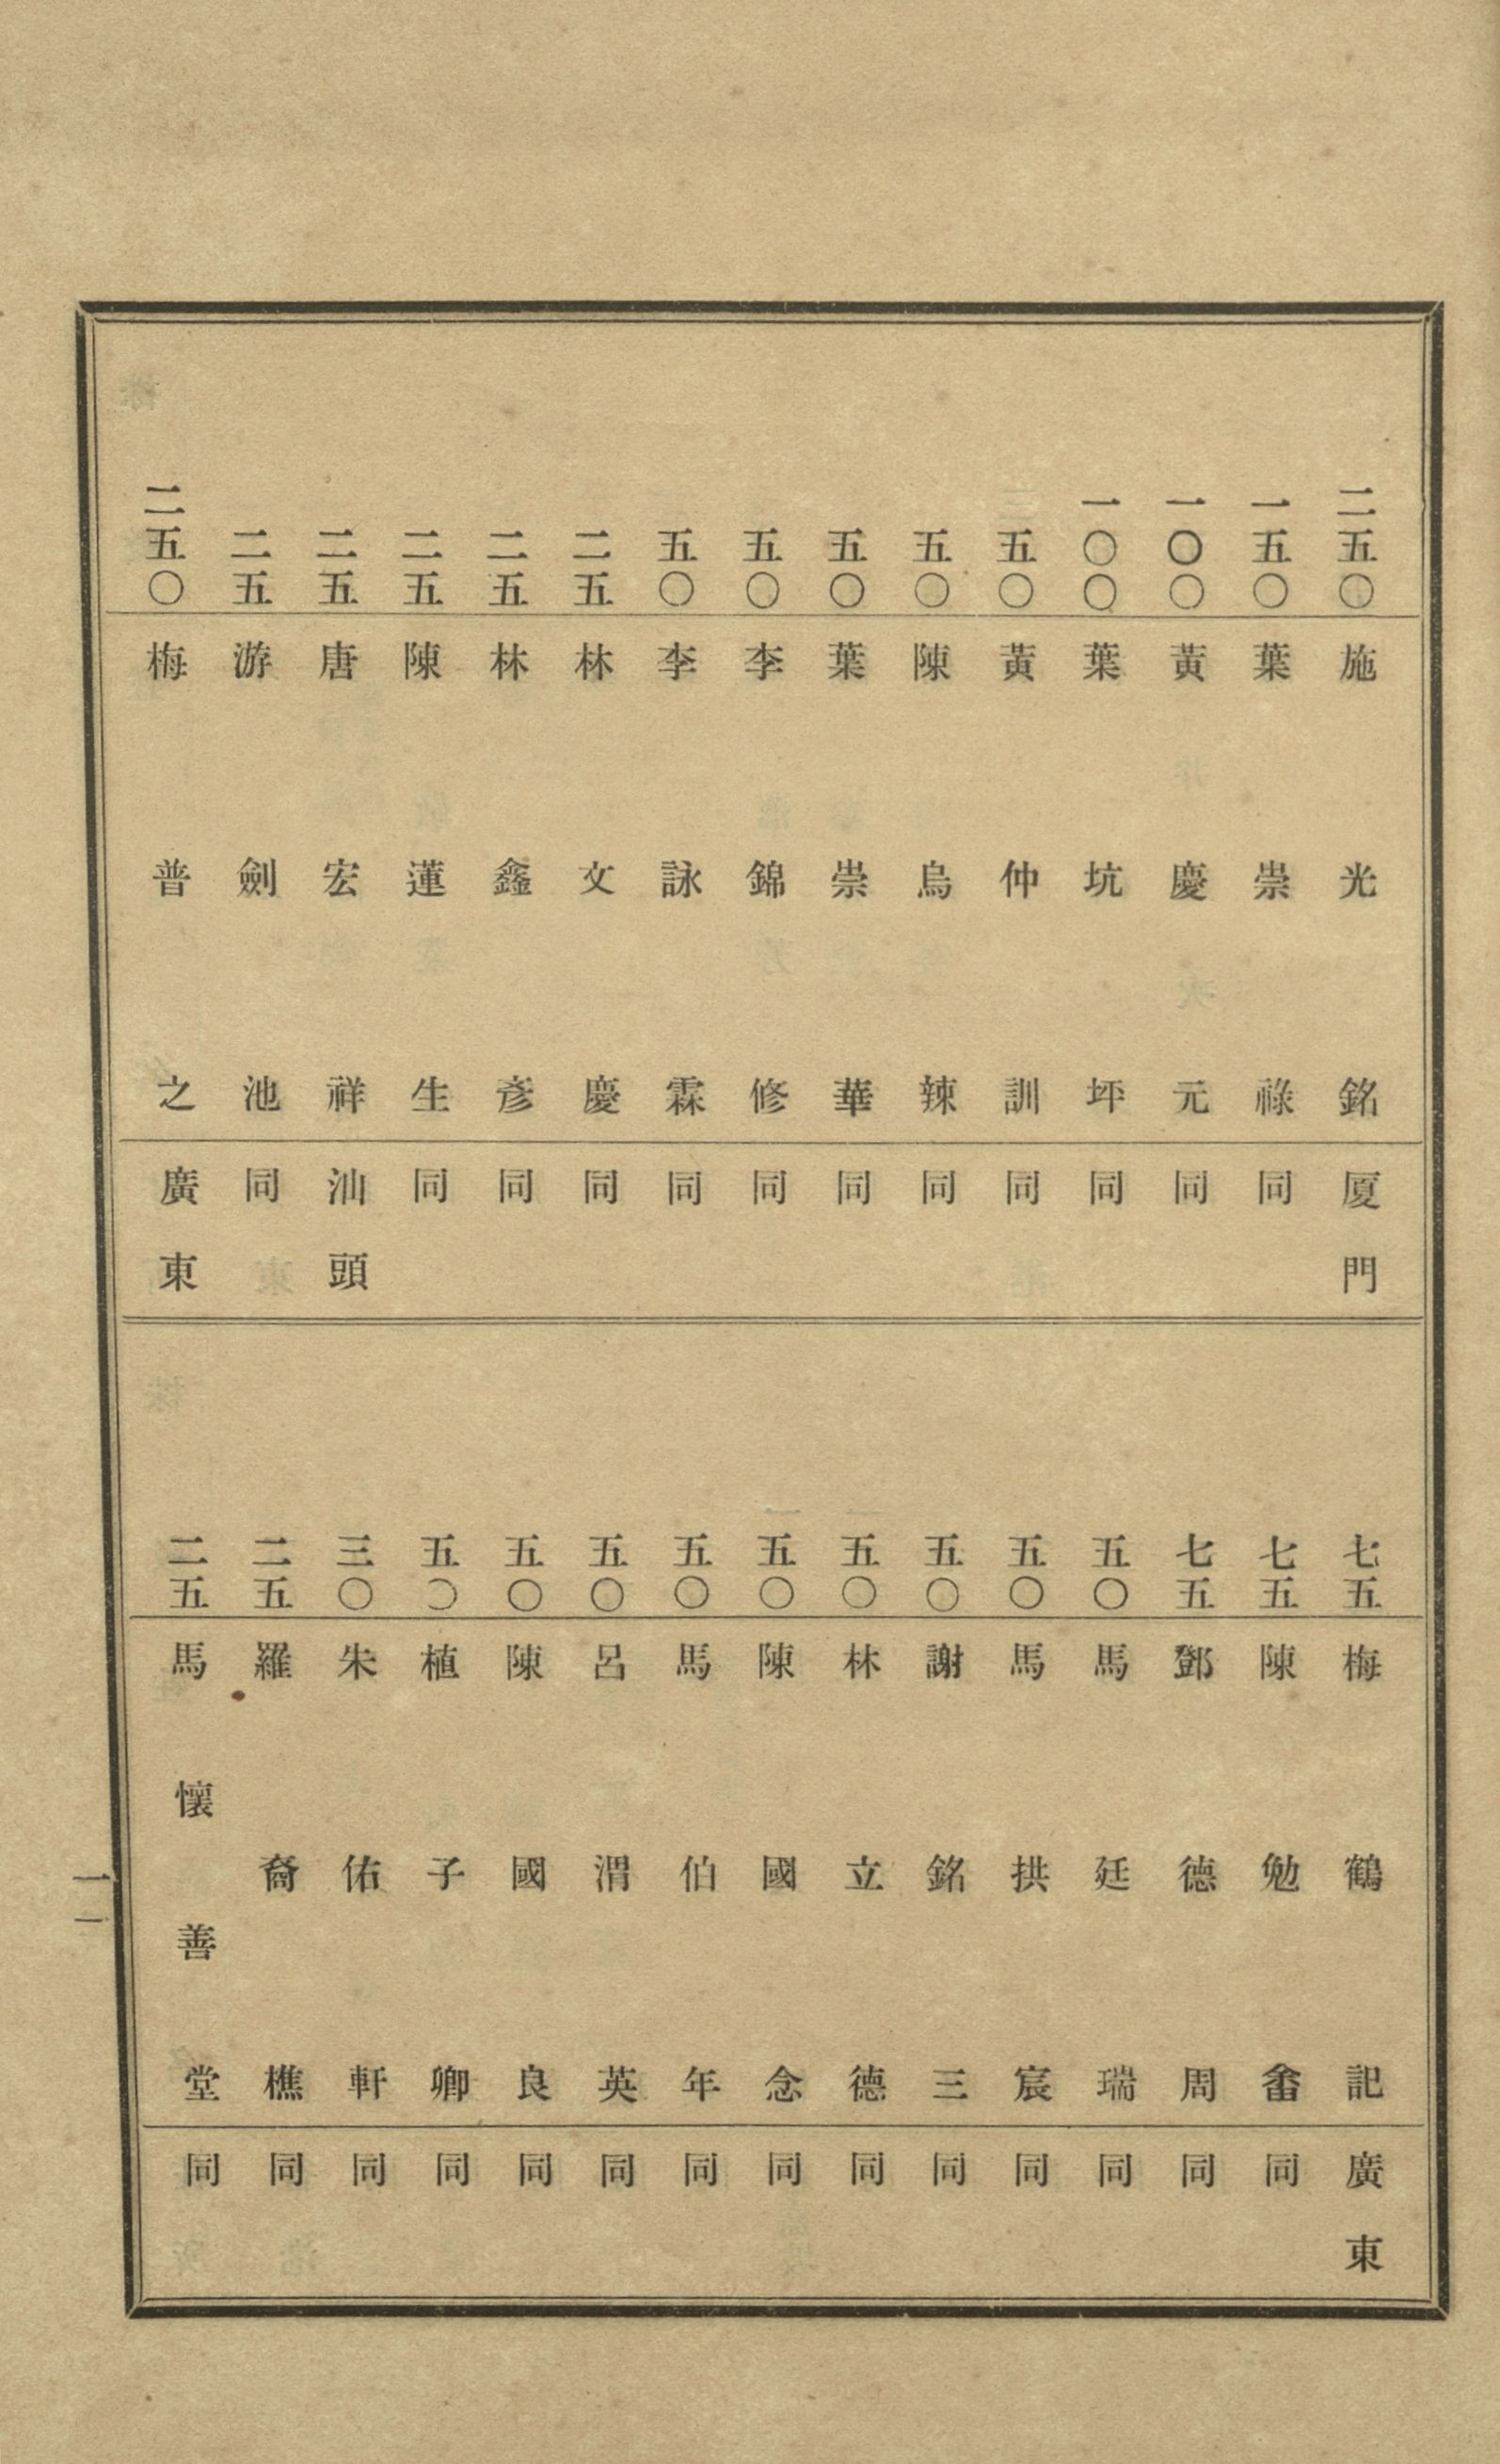 二五〇 施光銘 厦門
一五〇 葉崇祿 同
一〇〇 黃慶元 同
一〇〇 葉坑坪 同
五〇 黃仲訓 同
五〇 陳烏辣 同
五〇 葉崇華 同
五〇 李錦修 同
五〇 李詠霖 同
二五 林文慶 同
二五 林鑫彥 同
二五 陳蓮生 同
二五 唐宏祥 汕頭
二五 游劍池 同
二五〇 梅普之 廣東
七五 梅鶴記 廣東
七五 陳勉畬 同
七五 鄧德周 同
五〇 馬廷瑞 同
五〇 馬拱宸 同
五〇 謝銘三 同
五〇 林立德 同
五〇 陳國念 同
五〇 馬伯年 同
五〇 呂渭英 同
五〇 陳國良 同
五〇 植子卿 同
三〇 朱佑軒 同
二五 羅裔樵 同
二五 馬懷善堂 同
一一